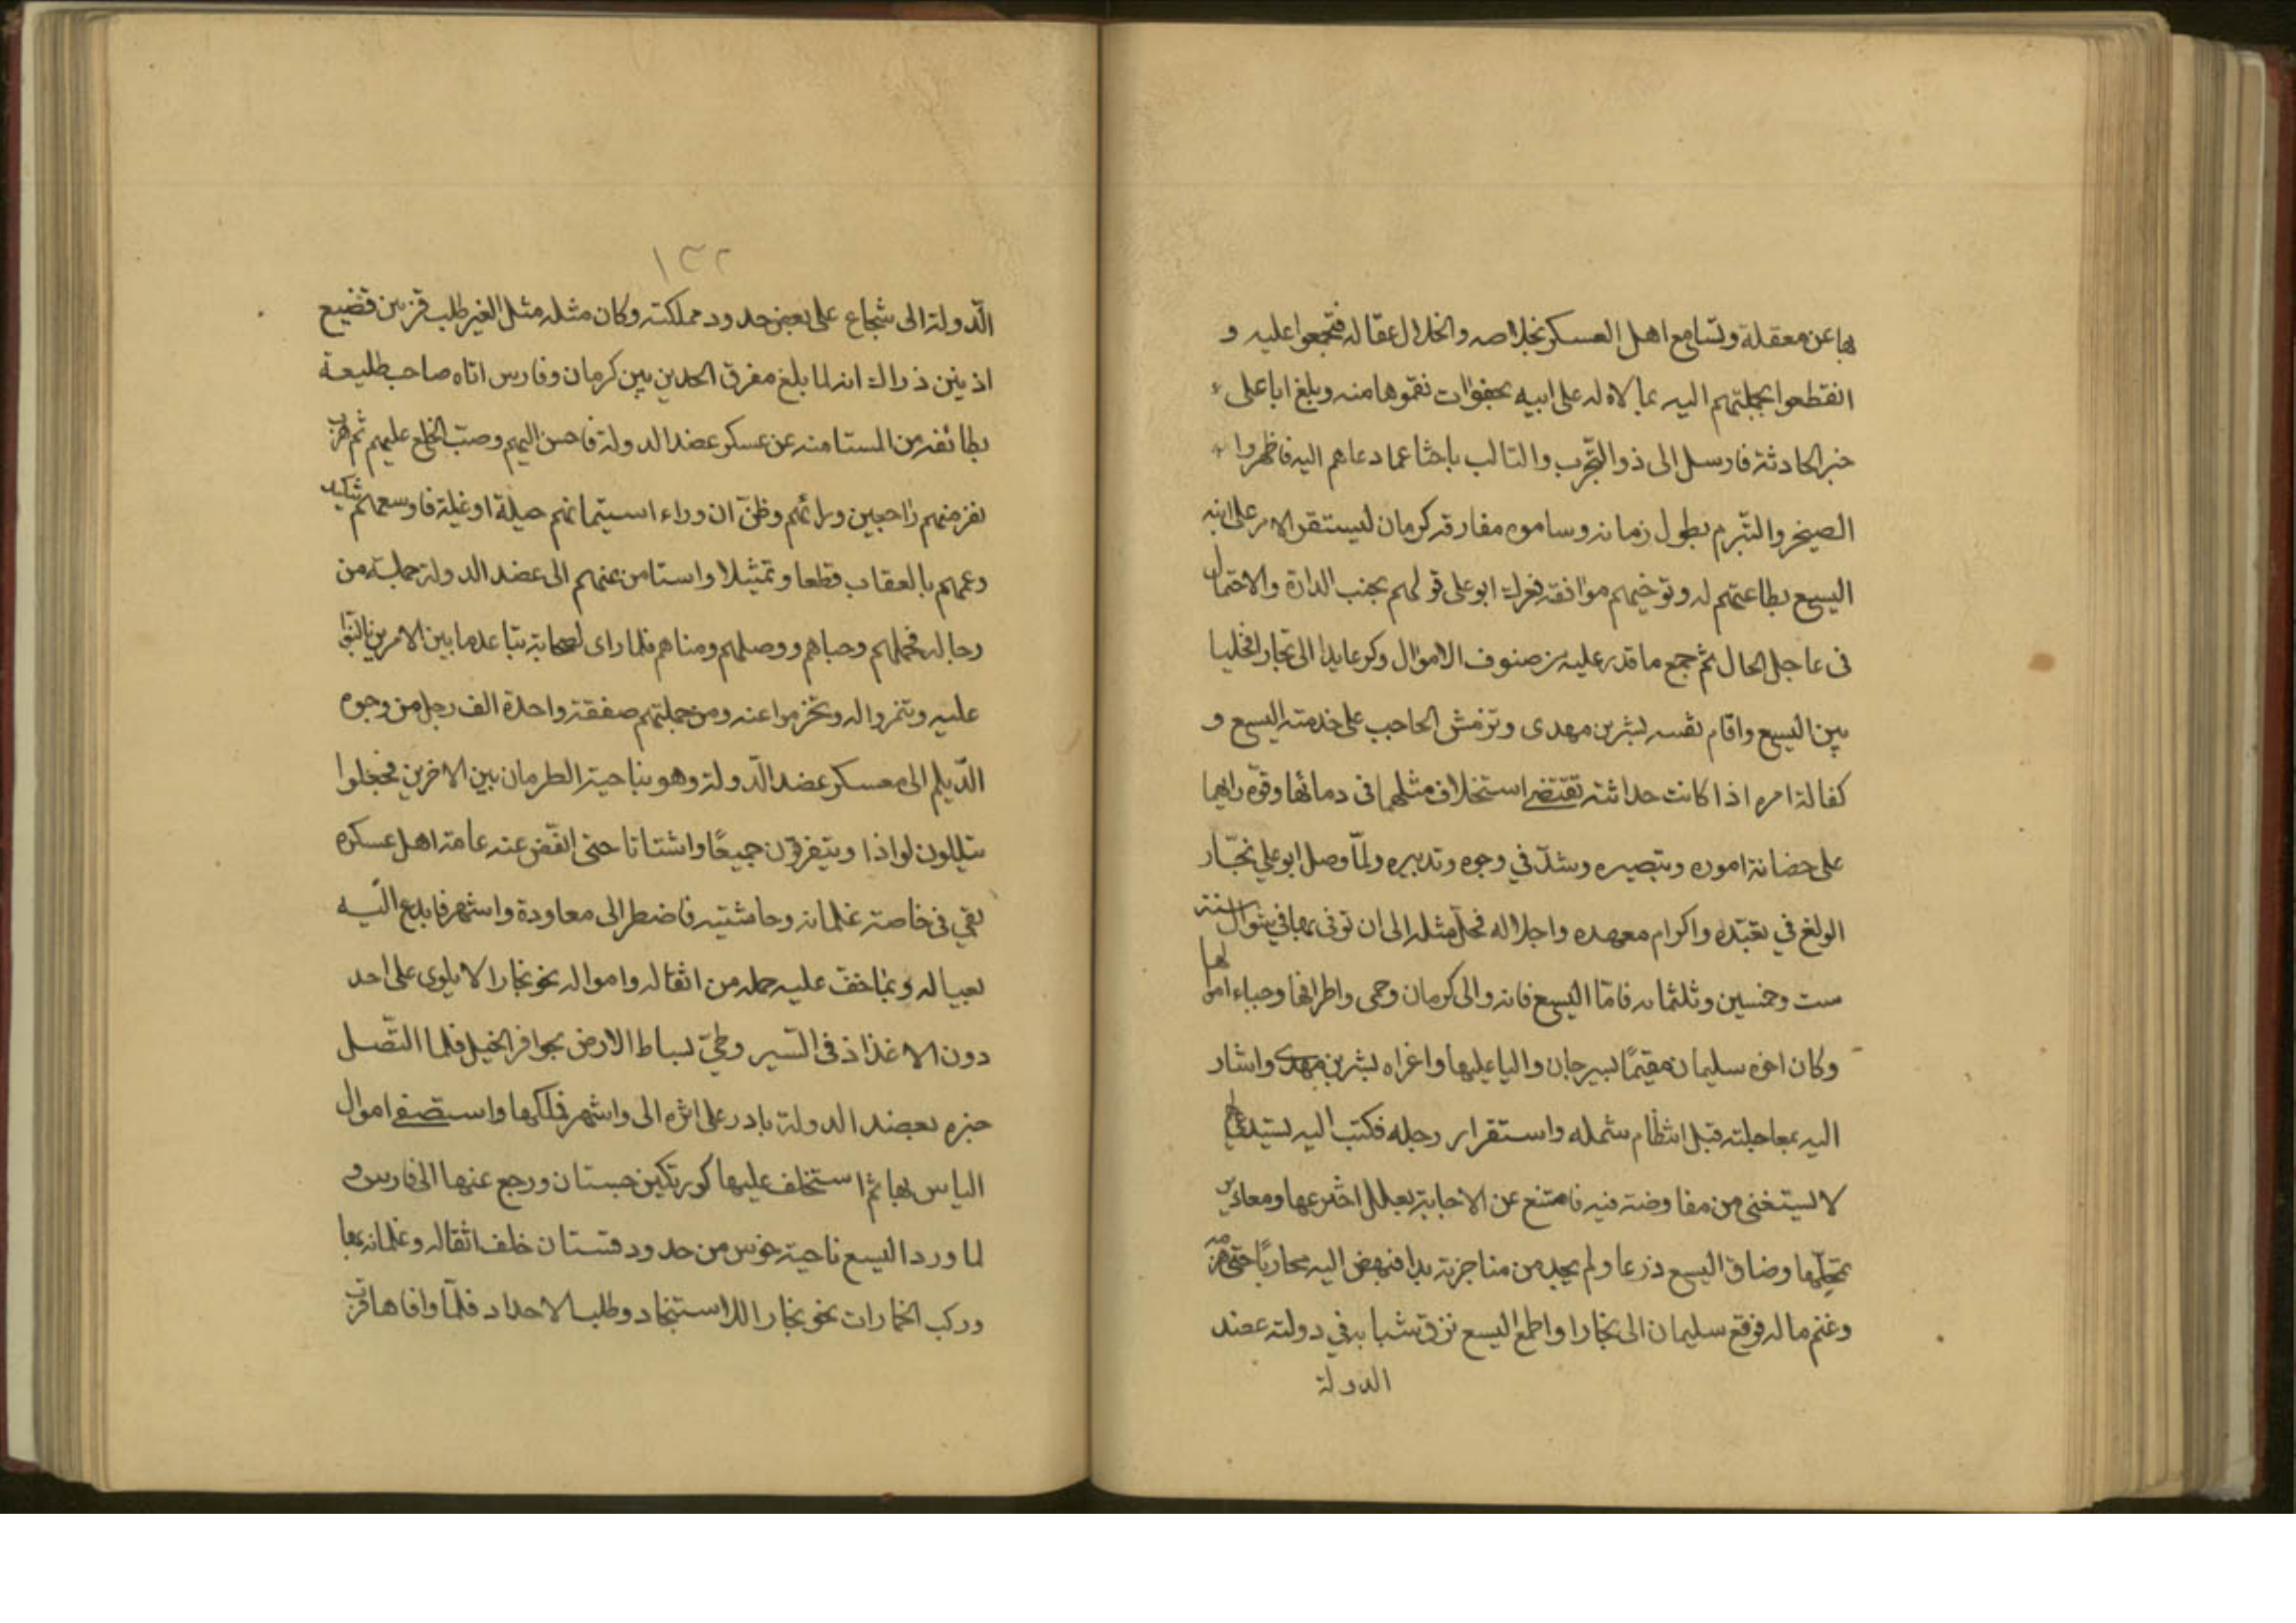 بها عن معقلة وتسامع اهل العسكر بخلاصه وانحلال عقاله فتجمعوا عليه و
انقطعوا بجملتهم اليه ممالاة له على ابيه بهفوات نقموها منه وبلغ ابا على
خبر الحادثة فارسل الى ذو التحزب والتالب باحثا عما دعاهم اليه فاظهروا
الضجر والتبرم بطول زمانه وساموه مفارقة كرمان ليستقر الامر على ابنه
اليسع بطاعتهم له وتوخيهم موافقته فعرك ابو على قولهم بجنب المداراة والاحتمال
فى عاجل الحال ثم جمع ما قدر عليه من صنوف الاموال وكر عايدا الى بخارا مخليا
بين اليسع واقام نفسه بشر بن مهدى وتزمش الحاجب على خدمته اليسع و
كفالة امره اذا كانت حداثته تقتضى استخلاف مثلهما فى دمائها وقوة رايهما
على حضانة اموره وتبصيره وسدّ فى وجوه وتدبيره ولمّا وصل ابو على بخارا
الولغ في تعبّده واكرام معهده واجلاله محل مثله الى ان توفى بها في شوال سنة
ست وخمسين وثلثمائه فامّا اليسع فانه والى كرمان وحمى واطرافها وحباء اموالها
وكان اخوه سليمان مقيمًا بسيرجان واليا عليها واغراه بشر بن مهدى واشار
اليه بمعاجلته قبل انتظام شمله واستقرار رجله فكتب اليه يستدعي
لا يستغنى من مفاوضته فيه فامتنع عن الاجابة بعلل اخترعها ومعاذير
تمحّلها وضاق اليسع ذرعا ولم يجد من مناجزته بدا فنهض اليه محاربًا حتى هزمه
وغنم ماله فوقع سليمان الى بخارا واطمع اليسع نزق شبابه في دولته عضد
الدولة
١٣٢
الدّولة الى شجاع على بعض حدود مملكته وكان مثله مثل العير طلب قرنين فضيع
اذنين ذلك انه لما بلغ مفرق الحدين بين كرمان وفارس اتاه صاحب طليعة
بطائفه من المستامنه عن عسكر عضد الدولة فاحسن اليهم وصبّ الخلع عليهم ثم هرب
نفر منهم راجعين ورائهم وظنّ ان وراء استيمانهم حيلة او غيلة فاوسعهم تنكيلا
وعمهم بالعقاب قطعا وتمثيلا واستامن عنهم الى عضد الدولة جملة من
رجاله فحملهم وحباهم ووصلهم ومناهم فلما راى اصحابه تباعد ما بين الامرين تالبوا
عليه وتنمروا له وتخزموا عنه ومن جملتهم صفقة واحدة الف رجل من وجوه
الدّيلم الى معسكر عضد الدّولة وهو بناحية الطرمان بين الاخرين فجعلوا
يتسللون لواذا ويتفرقون جميعًا واشتاتا حتى انفّض عنه عامة اهل عسكره
بقى فى خاصة غلمانه وحاشيته فاضطر الى معاودة واشهر فابدع الّيه
بعياله وبما خفّ عليه حمله من اثقاله وامواله نحو بخارا لا يلوى على احد
دون الاغذاذ فى السّير وطىّ بساط الارض بحوافر الخيل فلما اتّصل
خبره بعضد الدولة بادر على اثره الى واشهر فملكها واستصفى اموال
الياس بها ثم استخلف عليها كورتكين جستان ورجع عنها الى فارس و
لما ورد اليسع ناحية خوس من حدود قهستان خلف اثقاله وغلمانه بها
وركب الخمارات نحو بخارا للاستنجاد وطلب الامداد فلمّا وافاها قرّب